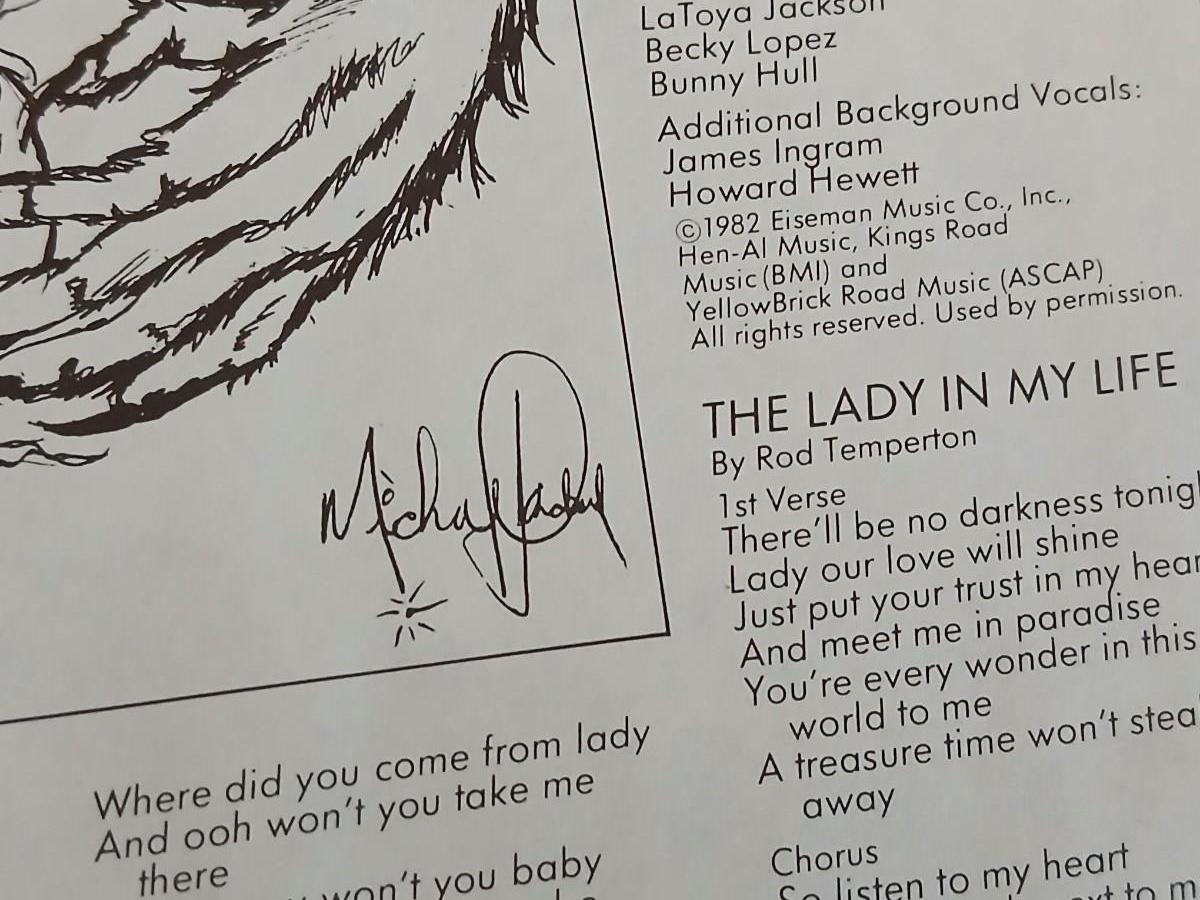 LaToya Jackson
Becky Lopez
Bunny Hull
Additional Background Vocals:
James Ingram
Howard Hewett
©1982 Eiseman Music Co., Inc.,
Hen-Al Music, Kings Road
Music (BMI) and
YellowBrick Road Music (ASCAP)
All rights reserved. Used by permission.
THE LADY IN MY LIFE
By Rod Temperton
1st Verse
There'll be no darkness tonig
Lady our love will shine
Just put your trust in my hear
And meet me in paradise
You're every wonder in this
world to me
A treasure time won't steal
away
Chorus
So listen to my heart
to m
Michael Jackson
Where did you come from lady
And ooh won't you take me
there
won't you baby